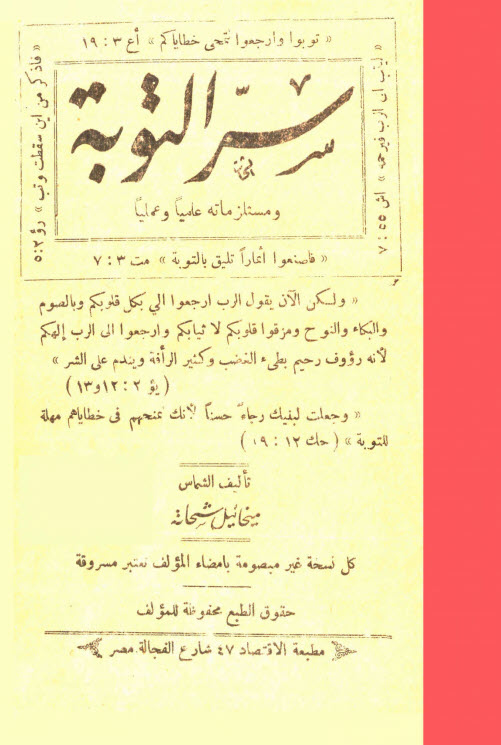 « توبوا وارجعوا لتمحى خطاياكم » أع ٣ : ١٩
« ليتب الى الرب فيرحمه » اش ٥٥ : ٧
« فاذكر من اين سقطت وتب » رؤ ٢ : ٥
سر التوبة
ومستلزماته علمياً وعملياً
« فاصنعوا أثماراً تليق بالتوبة » مت ٣ : ٧
« ولكن الآن يقول الرب ارجعوا الي بكل قلوبكم وبالصوم
والبكاء والنوح ومزقوا قلوبكم لا ثيابكم وارجعوا الى الرب إلهكم
لأنه رؤوف رحيم بطىء الغضب وكثير الرأفة ويندم على الشر »
( يؤ ٢ : ١٢و١٣ )
« وجعلت لبنيك رجاءً حسناً لأنك تمنحهم فى خطاياهم مهلة
للتوبة » ( حك ١٢ : ١٩ )
تأليف الشماس
ميخائيل شحاته
كل نسخة غير مبصومة بامضاء المؤلف تعتبر مسروقة
حقوق الطبع محفوظة للمؤلف
مطبعة الاقتصاد ٤٧ شارع الفجالة. مصر